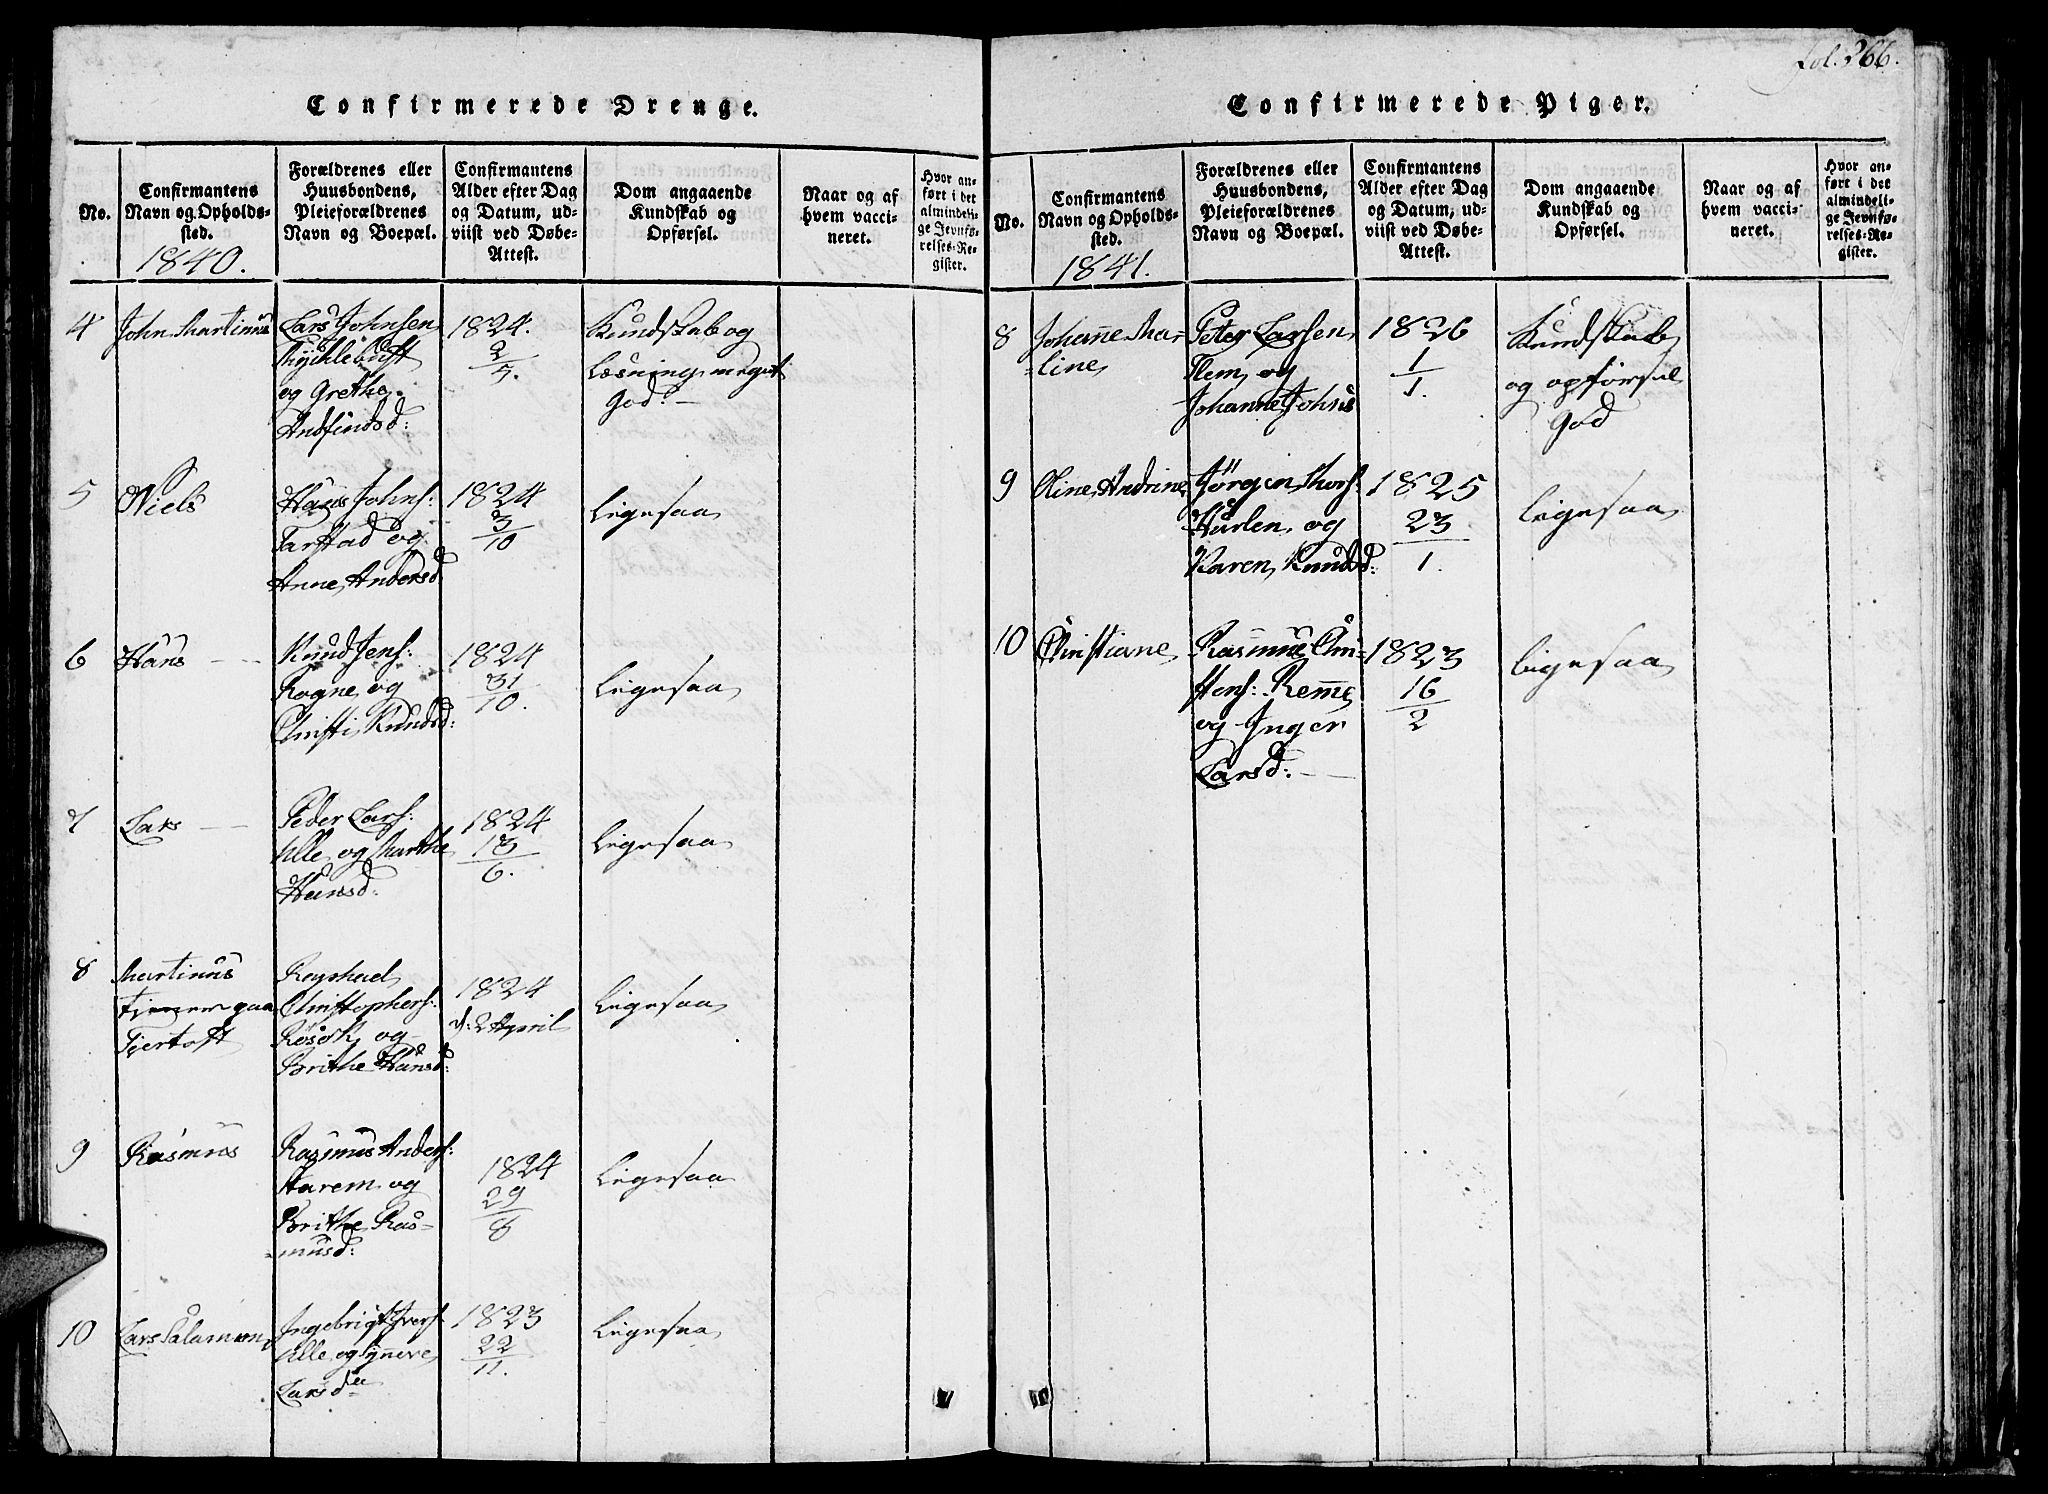 Confirmerede Drenge.
No.
Confirmantens
Navn og Opholds-
sted.
1840.
Forældrenes eller
Huusbondens,
Pleieforældrenes
Navn og Boepæl.
Confirmantens
Alder efter Dag
og Datum, ud-
viist ved Døbe-
Attest.
Dom angaaende
Kundskab og
Opførsel.
Naar og af
hvem vacci-
neret.
Hvor an-
ført i det
almindeli-
ge Jevnfø-
relses-Re-
gister.
4
John Martinus
Lars Johnsen
og Grethe
Andfindsd:
1824.
2
Kundskab og
Læsning meget
God. –
5
Niels
Hans Johns:
Farstad og
Anne Andersd
1824
3
10
Ligesaa
6
Hans
Knud Jens:
Rogne og
Christi Knudsd:
1824
31
10.
Ligesaa
7
Lars
Peder Lars:
Ulle og Marthe
Hansd:
1824
13
6.
Ligesaa
8
Martinus
tjener paa
Fjertoft
Christophers:
og
Brithe Hansd:
1824
d: 2 April
Ligesaa
9
Rasmus
Rasmus Anders:
Harem og
Brithe Ras-
-musd:
1824
29
8
Ligesaa
10
Lars Salamon
Ingebrigt Ivers:
Ulle og Synneve
Larsd
1823
22
11.
Ligesaa
Fol. 266.
Confirmerede Piger.
No.
Confirmantens
Navn og Opholds-
sted.
1841.
Forældrenes eller
Huusbondens,
Pleieforældrenes
Navn og Boepæl.
Confirmantens
Alder efter Dag
og Datum, ud-
viist ved Døbe-
Attest.
Dom angaaende
Kundskab og
Opførsel.
Naar og af
hvem vacci-
neret.
Hvor an-
ført i det
almindeli-
ge Jevnfø-
relses-Re-
gister.
8
Johan̄e Ma-
-line
Peter Larsen
Flem og
Johanne Johns
1826
1
1.
Kundskab
og opførsel
God
9
Oline Andrine
Jørgen Thors:
Hurlen og
Karen Knudsd:
1825
23
1.
Ligesaa
10
Christiane
Rasmus Chri-
stens: Rem̄e
og Inger
Larsd: –
1823
16
2
Ligesaa